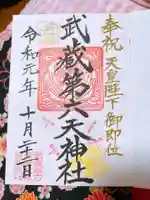 奉祝 天皇陛下 御即位
武蔵第六天神社
令和元年 十月二十二日